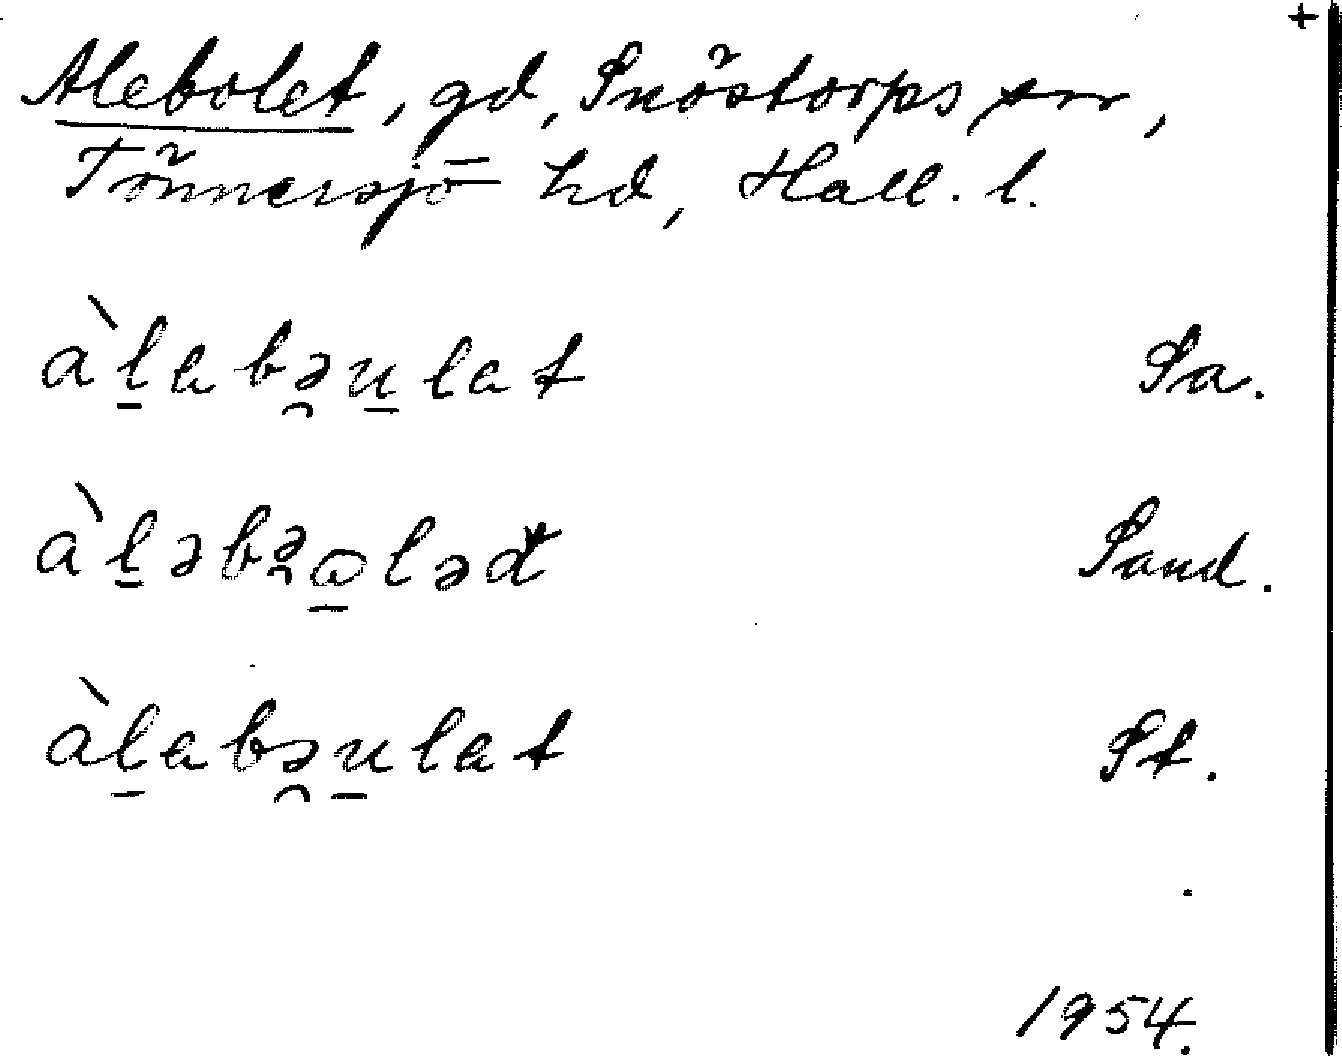 +
Alebolet, gd, Snöstorps sn,
Tönnersjö hd, Hall. l.
àl̠abə̯u̠lat Sa.
àl̠əbə̯ω̠ləd Sand.
àl̠abə̯u̠lat St.
1954.